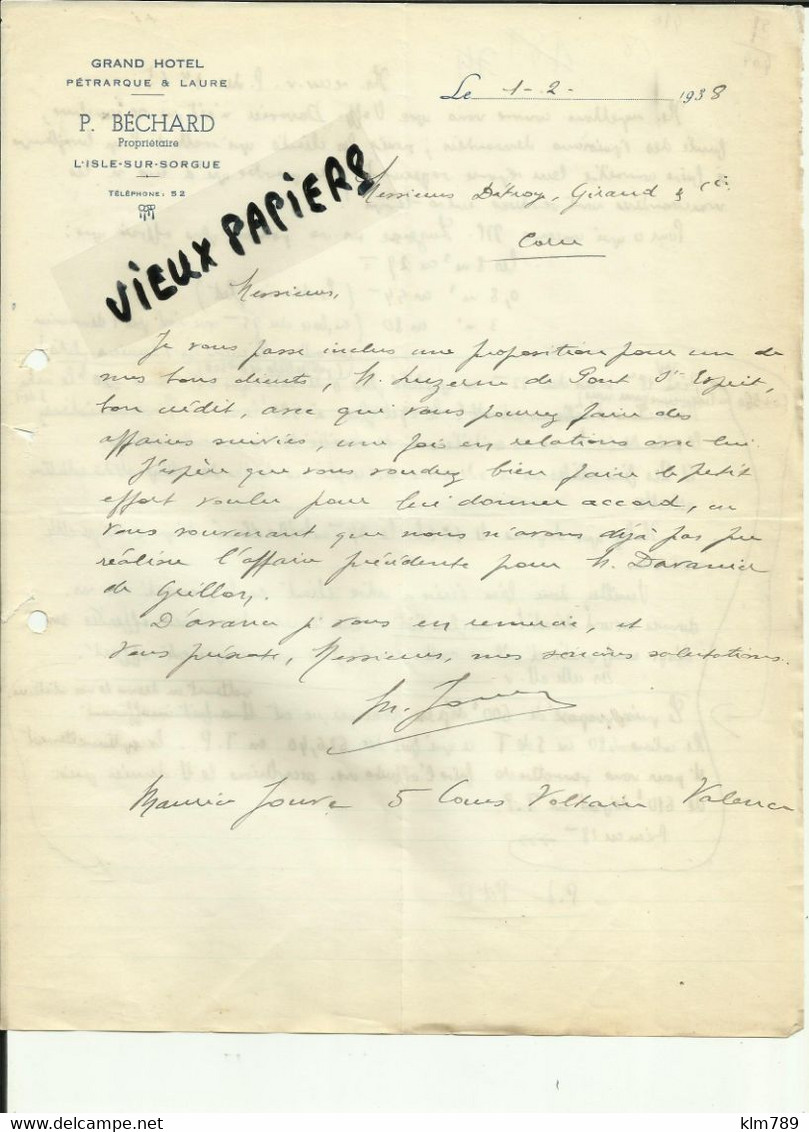 GRAND HOTEL
PÉTRARQUE & LAURE
P. BÉCHARD
Propriétaire
L'ISLE-SUR-SORGUE
TÉLÉPHONE: 52
Le 1-2- 1938
Messieurs Détroy, Giraud & Cie
VIEUX PAPIERS
Messieurs,
Je vous passe inclus une proposition pour un de
mes bons clients, M. Luzerne de Pont St Esprit,
bon crédit, avec qui vous pourrez faire des
affaires suivies, une fois en relations avec lui.
J'espère que vous voudrez bien faire le petit
effort voulu pour lui donner accord, en
vous souvenant que nous n'avons déjà pas pu
réaliser l'affaire précédente pour M.
de Grillon.
D'avance je vous en remercie, et
vous présente, Messieurs, mes sincères salutations.
M. Jouve
Maurice Jouve 5 Cours Voltaire Valence
klm789